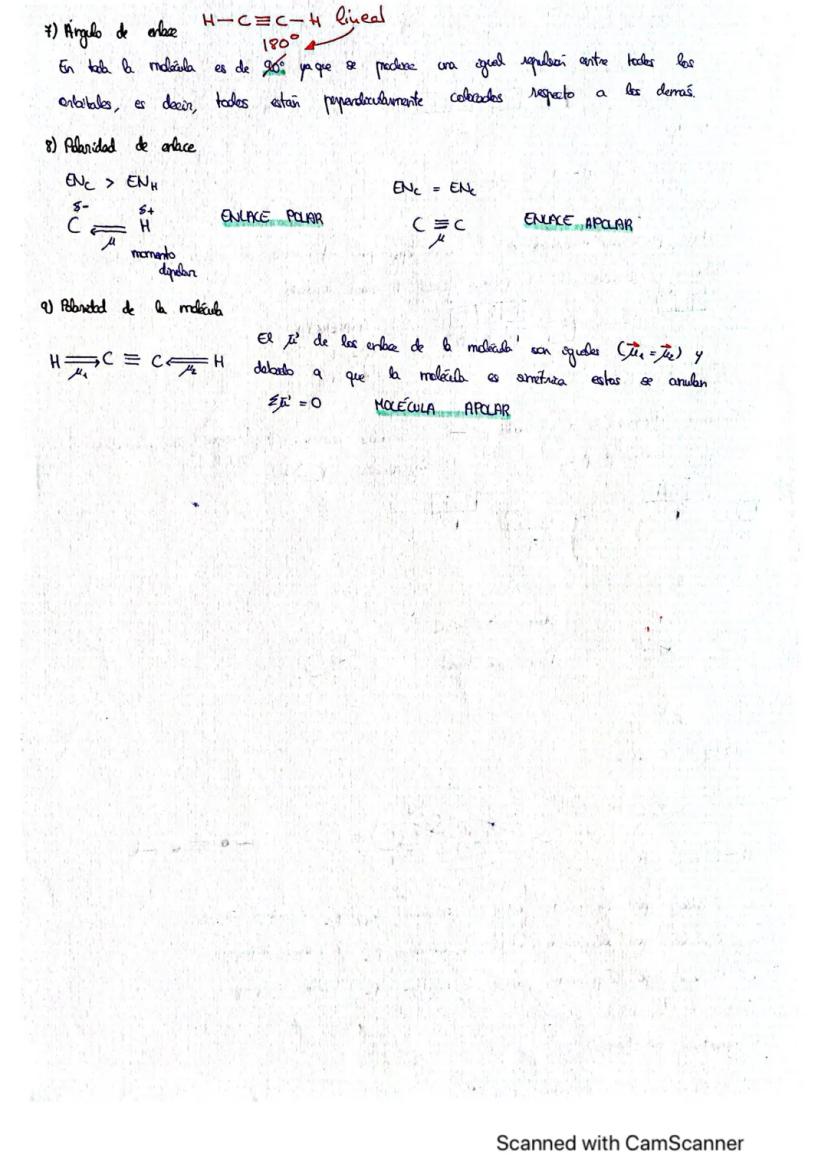 7) Ángulo de enlace H-C≡C-H lineal
180°
En toda la molécula es de 90° ya que se produce una igual repulsión entre todos los
orbitales, es decir, todos están perpendicularmente colocados respecto a los demás.
8) Polaridad de enlace
EN_C > EN_H EN_C = EN_C
δ- δ+
C ⟸ H ENLACE POLAR C ≡ C ENLACE APOLAR
μ μ
momento
dipolar
9) Polaridad de la molécula
El μ⃗ de los enlace de la molécula son iguales (μ⃗₁ = μ⃗₂) y
H ⟹ C ≡ C ⟸ H debido a que la molécula es simétrica estos se anulan
μ₁ μ₂
Σμ⃗ = 0 MOLÉCULA APOLAR
Scanned with CamScanner